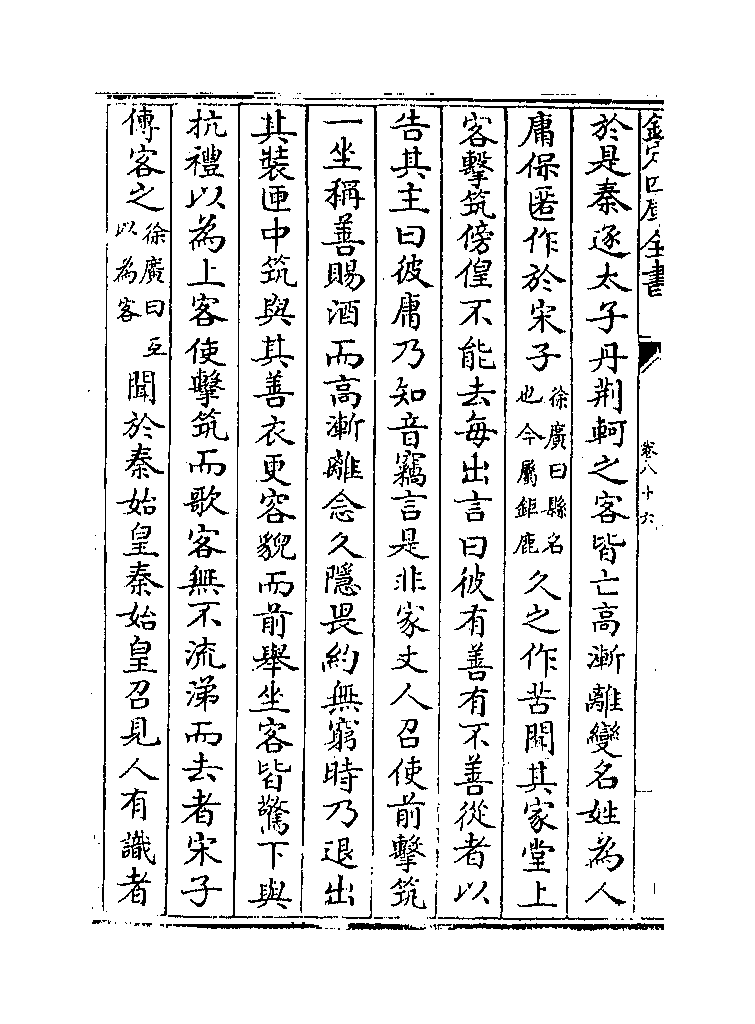 欽定四庫全書
卷八十六
於是秦逐太子丹荆軻之客皆亡高漸離變名姓為人
庸保匿作於宋子徐廣曰縣名也今屬鉅鹿久之作苦聞其家堂上
客擊筑傍偟不能去每出言曰彼有善有不善從者以
告其主曰彼庸乃知音竊言是非家丈人召使前擊筑
一坐稱善賜酒而高漸離念久隱畏約無窮時乃退出
其裝匣中筑與其善衣更容貌而前舉坐客皆驚下與
抗禮以為上客使擊筑而歌客無不流涕而去者宋子
傳客之徐廣曰互以為客聞於秦始皇秦始皇召見人有識者